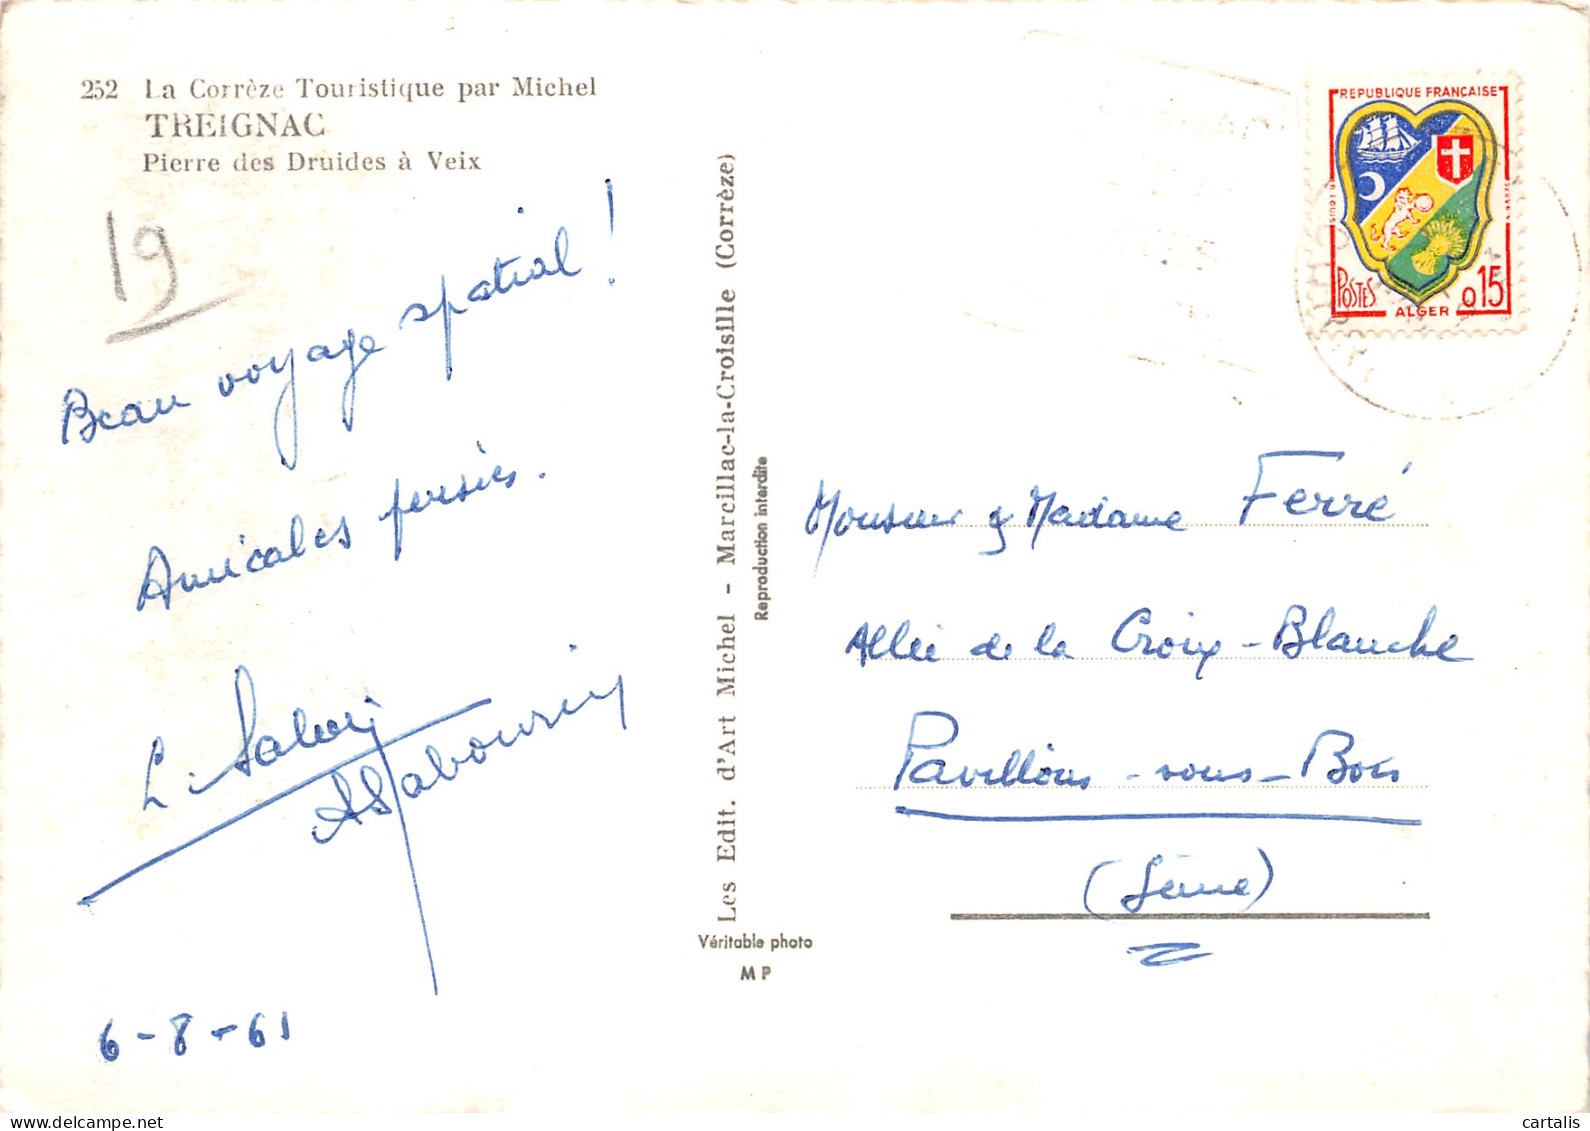 252 La Corrèze Touristique par Michel
TREIGNAC
Pierre des Druides à Veix
19
Beau voyage spatial !
Amicales pensées.
L. Sabourin
A Sabourin
6-8-61
Les Edit. d'Art Michel - Marcillac-la-Croisille (Corrèze)
Reproduction interdite
Véritable photo
M P
REPUBLIQUE FRANÇAISE
POSTES
0,15
ALGER
Monsieur & Madame Ferré
Allée de la Croix-Blanche
Pavillons-sous-Bois
(Seine)
cartalis